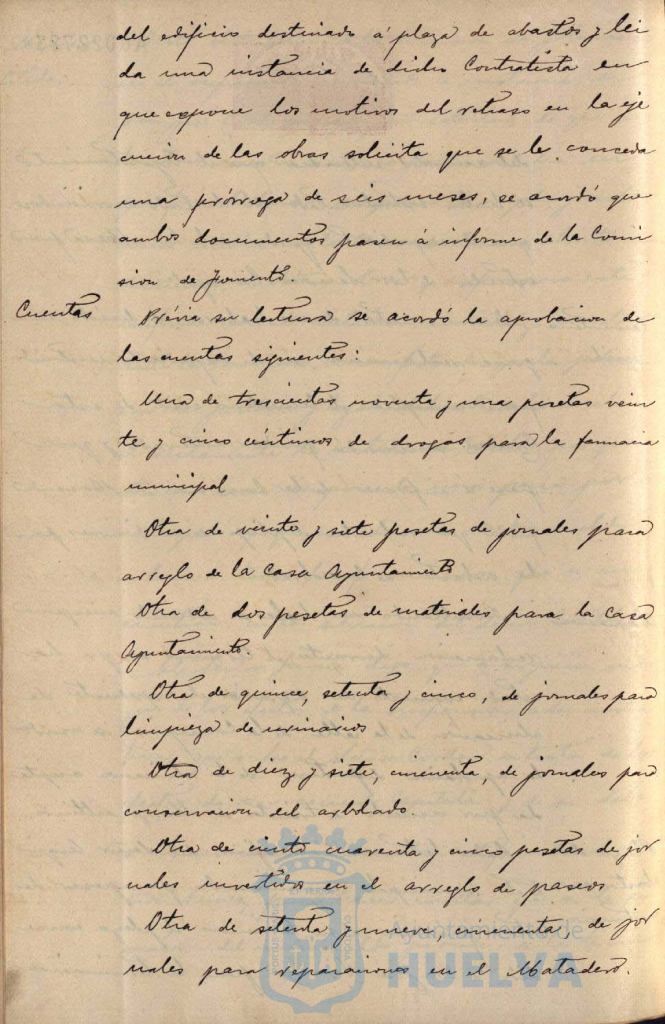 del edificio destinado á plaza de abastos y lei
da una instancia de dicho Contratista en
que expone los motivos del retraso en la eje
cucion de las obras solicita que se le conceda
una prórroga de seis meses, se acordó que
ambos documentos pasen á informe de la Comi
sion de Fomento.
Cuentas
Prévia su lectura se acordó la aprobacion de
las cuentas siguientes:
Una de trescientas noventa y una pesetas vein
te y cinco céntimos de drogas para la farmacia
municipal
Otra de veinte y siete pesetas de jornales para
arreglo de la casa Ayuntamiento
Otra de dos pesetas de materiales para la casa
Ayuntamiento.
Otra de quince, setenta y cinco, de jornales para
limpieza de urinarios
Otra de diez y siete, cincuenta, de jornales para
conservacion del arbolado.
Otra de ciento cuarenta y cinco pesetas de jor
nales invertidos en el arreglo de paseos
Otra de setenta y nueve, cincuenta, de jor
nales para reparaciones en el Matadero.
Ayuntamiento de
HUELVA